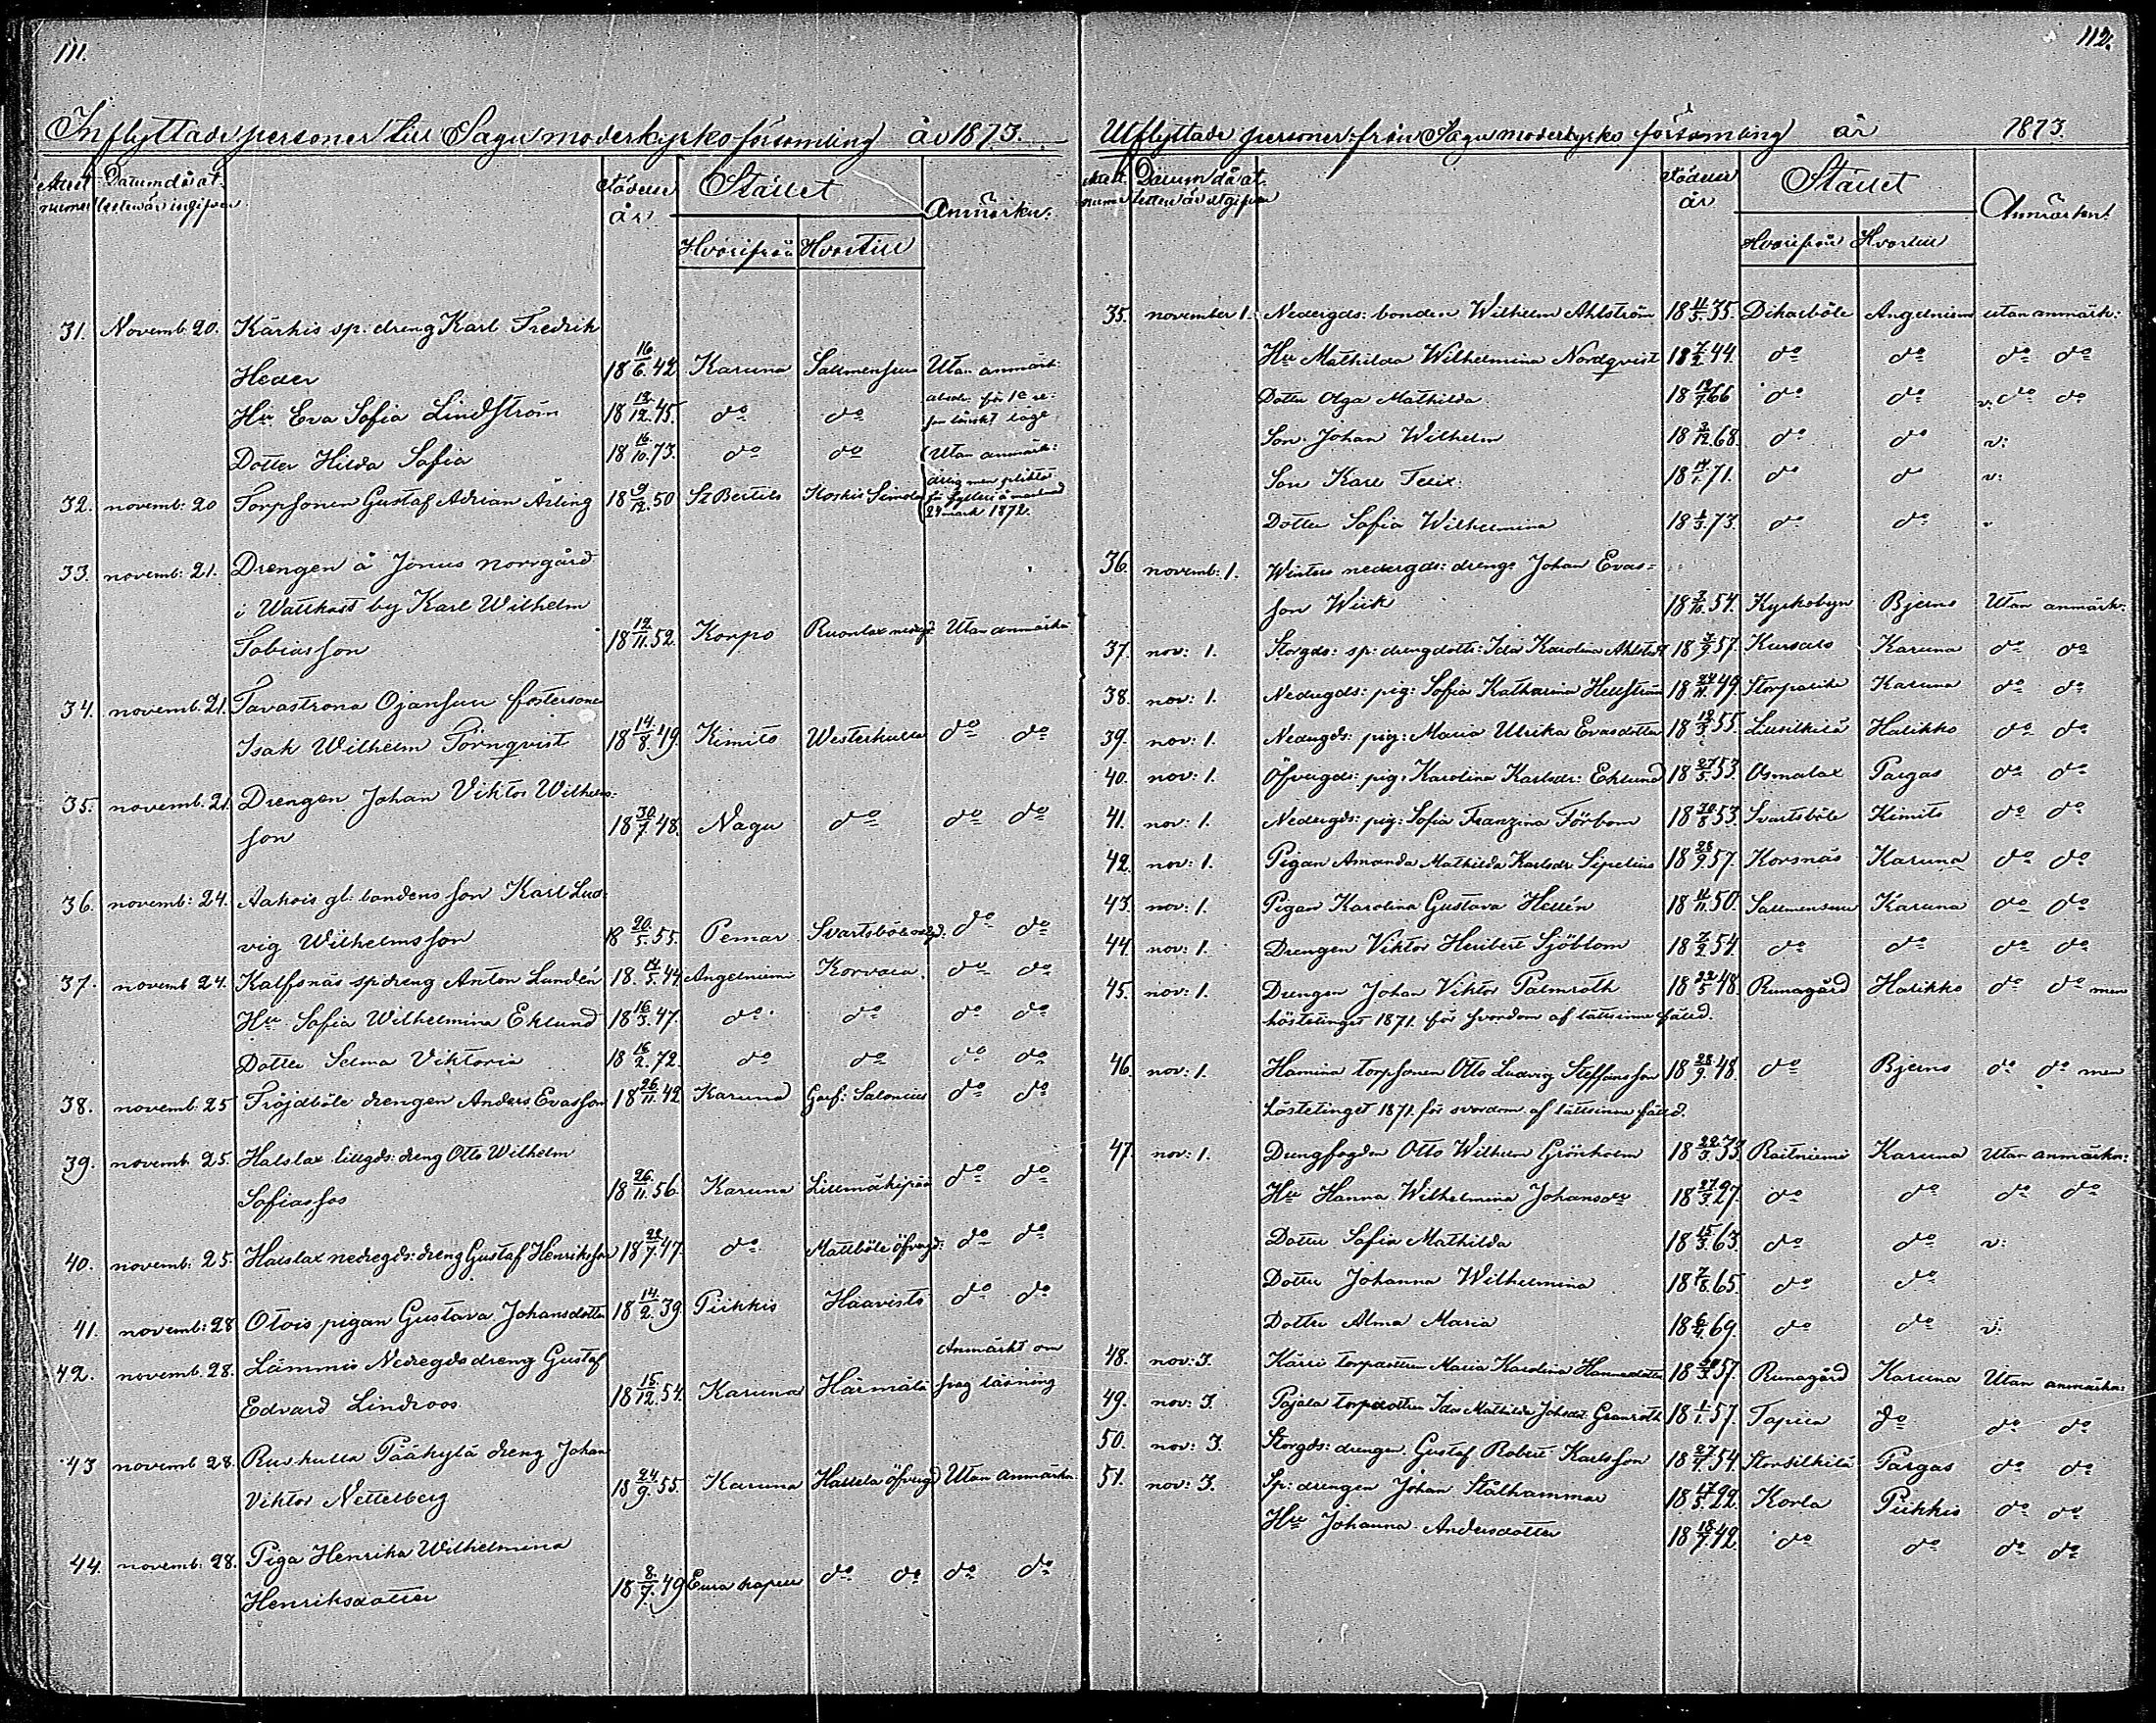 111.
Inflyttade personer till Sagu moderkyrko församling år 1873.
Datum då at- Födelse Stället Anmärkn:
år Hvarifrån Hvartill
31. Novemb. 20. Kärkis sp. dreng Karl Fredrik
Heder 18 16/6. 42 Karuna Salmensuu Utan anmärk:
Hu Eva Sofia Lindström 18 13/12. 45. do do
Dotter Hilda Sofia 18 16/10. 73. do do Utan anmärk:
32. novemb: 20 Torpsonen Gustaf Adrian Arling 18 9/12. 50 St Bertils Koskis Simola 1872.
33. novemb: 21. Drengen å Jonus norrgård
i Wattkast by Karl Wilhelm
Tobiasson 18 12/11. 52. Korpo Ruonlax nedgd. Utan anmärkn
34. novemb. 21. Tavastrona Ojansuu fostersonen
Isak Wilhelm Törnqvist 18 14/8. 49. Kimito Westerkulla do do
35. novemb. 21. Drengen Johan Viktor Wilhelms-
son 18 30/7. 48. Nagu do do do
36. novemb: 24. Aahois gl: bondens son Karl Lud-
vig Wilhelmsson 18 20/5. 55. Pemar Svartsböle do do
37. novemb 24. Kalfsnäs sp dreng Anton Lundén 18. 14/5. 44 Angelniemi Korvala do do
Hu Sofia Wilhelmina Eklund 18 16/3. 47. do do do do
Dotter Selma Viktoria 18 16/2. 72. do do do do
38. novemb: 25 Tröjdböle drengen Anders Evasson 18 26/11. 42 Karuna Garf: Salonius do do
39. novemb. 25. Halslax lillgds: dreng Otto Wilhelm
Sofiasson 18 26/11. 56. Karuna Lillmäkipää do do
40. novemb: 25. Halslax nedregds: dreng Gustaf Henriksson 18 28/7. 47. do Mattböle öfvegd: do do
41. novemb: 28 Otois pigan Gustava Johansdotter 18 14/2. 39 Piikkis Haavisto do do
Anmärkt om
42. novemb. 28. Lämmis Nedregds dreng Gustaf
Edvard Lindroos 18 15/12. 54. Karuna Härmälä svag läsning
43 novemb 28. Ruskulla Päähylä dreng Johan
Viktor Nettelberg 18 24/9. 55. Karuna Hallela öfvegd Utan anmärkn.
44. novemb: 28. Piga Henrika Wilhelmina
Henriksdotter 18 8/7. 49 Eura kapell do do do do
112.
Utflyttade personer från Sagu moderkyrko församling år 1873.
Datum då at- Födelse Stället Anmärkn:
testen är utgifven år Hvarifrån Hvartill
35. november 1. Nedergds: bonden Wilhelm Ahlström 18 11/5. 35. Dikarböle Angelniemi utan anmärk:
Hu Mathilda Wilhelmina Nordqvist 18 7/2. 44. do do do do
Dotter Olga Mathilda 18 12/7. 66 do do v: do do
Son Johan Wilhelm 18 3/12. 68. do do v:
Son Karl Felix 18 14/1. 71. do do v:
Dotter Sofia Wilhelmina 18 1/3. 73. do do
36. novemb: 1. Winters nedergds: dreng Johan Evas-
son Wiik 18 3/10. 54. Kyrkobyn Bjerno Utan anmärk:
37. nov: 1. Storgds: sp: drengdotter: Ida Karolina Ahlstedt 18 57. Kursals Karuna do do
38. nov: 1. Nedergds: pig: Sofia Katharina Hellström 18 24/11. 49. Karuna do do
39. nov: 1. Nedergds: pig: Maria Ulrika Evasdotter 18 12/3. 55. Lillsilkilä Halikko do do
40. nov: 1. Öfvergds: pig: Karolina Karlsdr: Eklund 18 27/5. 53. Osmalax Pargas do do
41. nov: 1. Nedergds: pig: Sofia Franzina Förbom 18 30/8. 53. Svartsböle Kimito do do
42. nov: 1. Pigan Amanda Mathilda Karlsdr Sipelius 18 28/9. 57. Korsnäs Karuna do do
43. nov: 1. Pigan Karolina Gustava Hellén 18 11/11. 50. Salmensuu Karuna do do
44. nov: 1. Drengen Viktor Heribert Sjöblom 18 7/2. 54. do do do do
45. nov: 1. Drengen Johan Viktor Palmroth 18 22/5. 48. Runagård Halikko do do men
hösttinget 1871. för svordom af lättsinne fälld.
46. nov: 1. Hamina torpsonen Otto Ludvig Steffansson 18 28/9. 48. do Bjerno do do men
hösttinget 1871. för svordom af lättsinne fälld.
47. nov: 1. Drengfogden Otto Wilhelm Grönholm 18 22/3. 33. Raitniemi Karuna Utan anmärkn:
Hu Hanna Wilhelmina Johansdr 18 27. do do do do
Dotter Sofia Mathilda 18 15/3. 63. do do v:
Dotter Johanna Wilhelmina 18 7/8. 65. do do
Dotter Alma Maria 18 6/4. 69. do do v:
48. nov: 3. Kärri torpdottren Maria Karolina Hannudotter 18 57. Runagård Karuna Utan anmärkn:
49. nov: 3. Pajala torpdottren Ida Mathilda Johsdr Granroth 18 1/1. 57. Tapila do do do
50. nov: 3. Storgds: drengen Gustaf Robert Karlsson 18 27/7. 54. Storsilkilä Pargas do do
51. nov: 3. Sp: drengen Johan Stålhammar 18 17/5. 22. Korla Piikkis do do
Hu Johanna Andersdotter 18 18/7. 42. do do do do